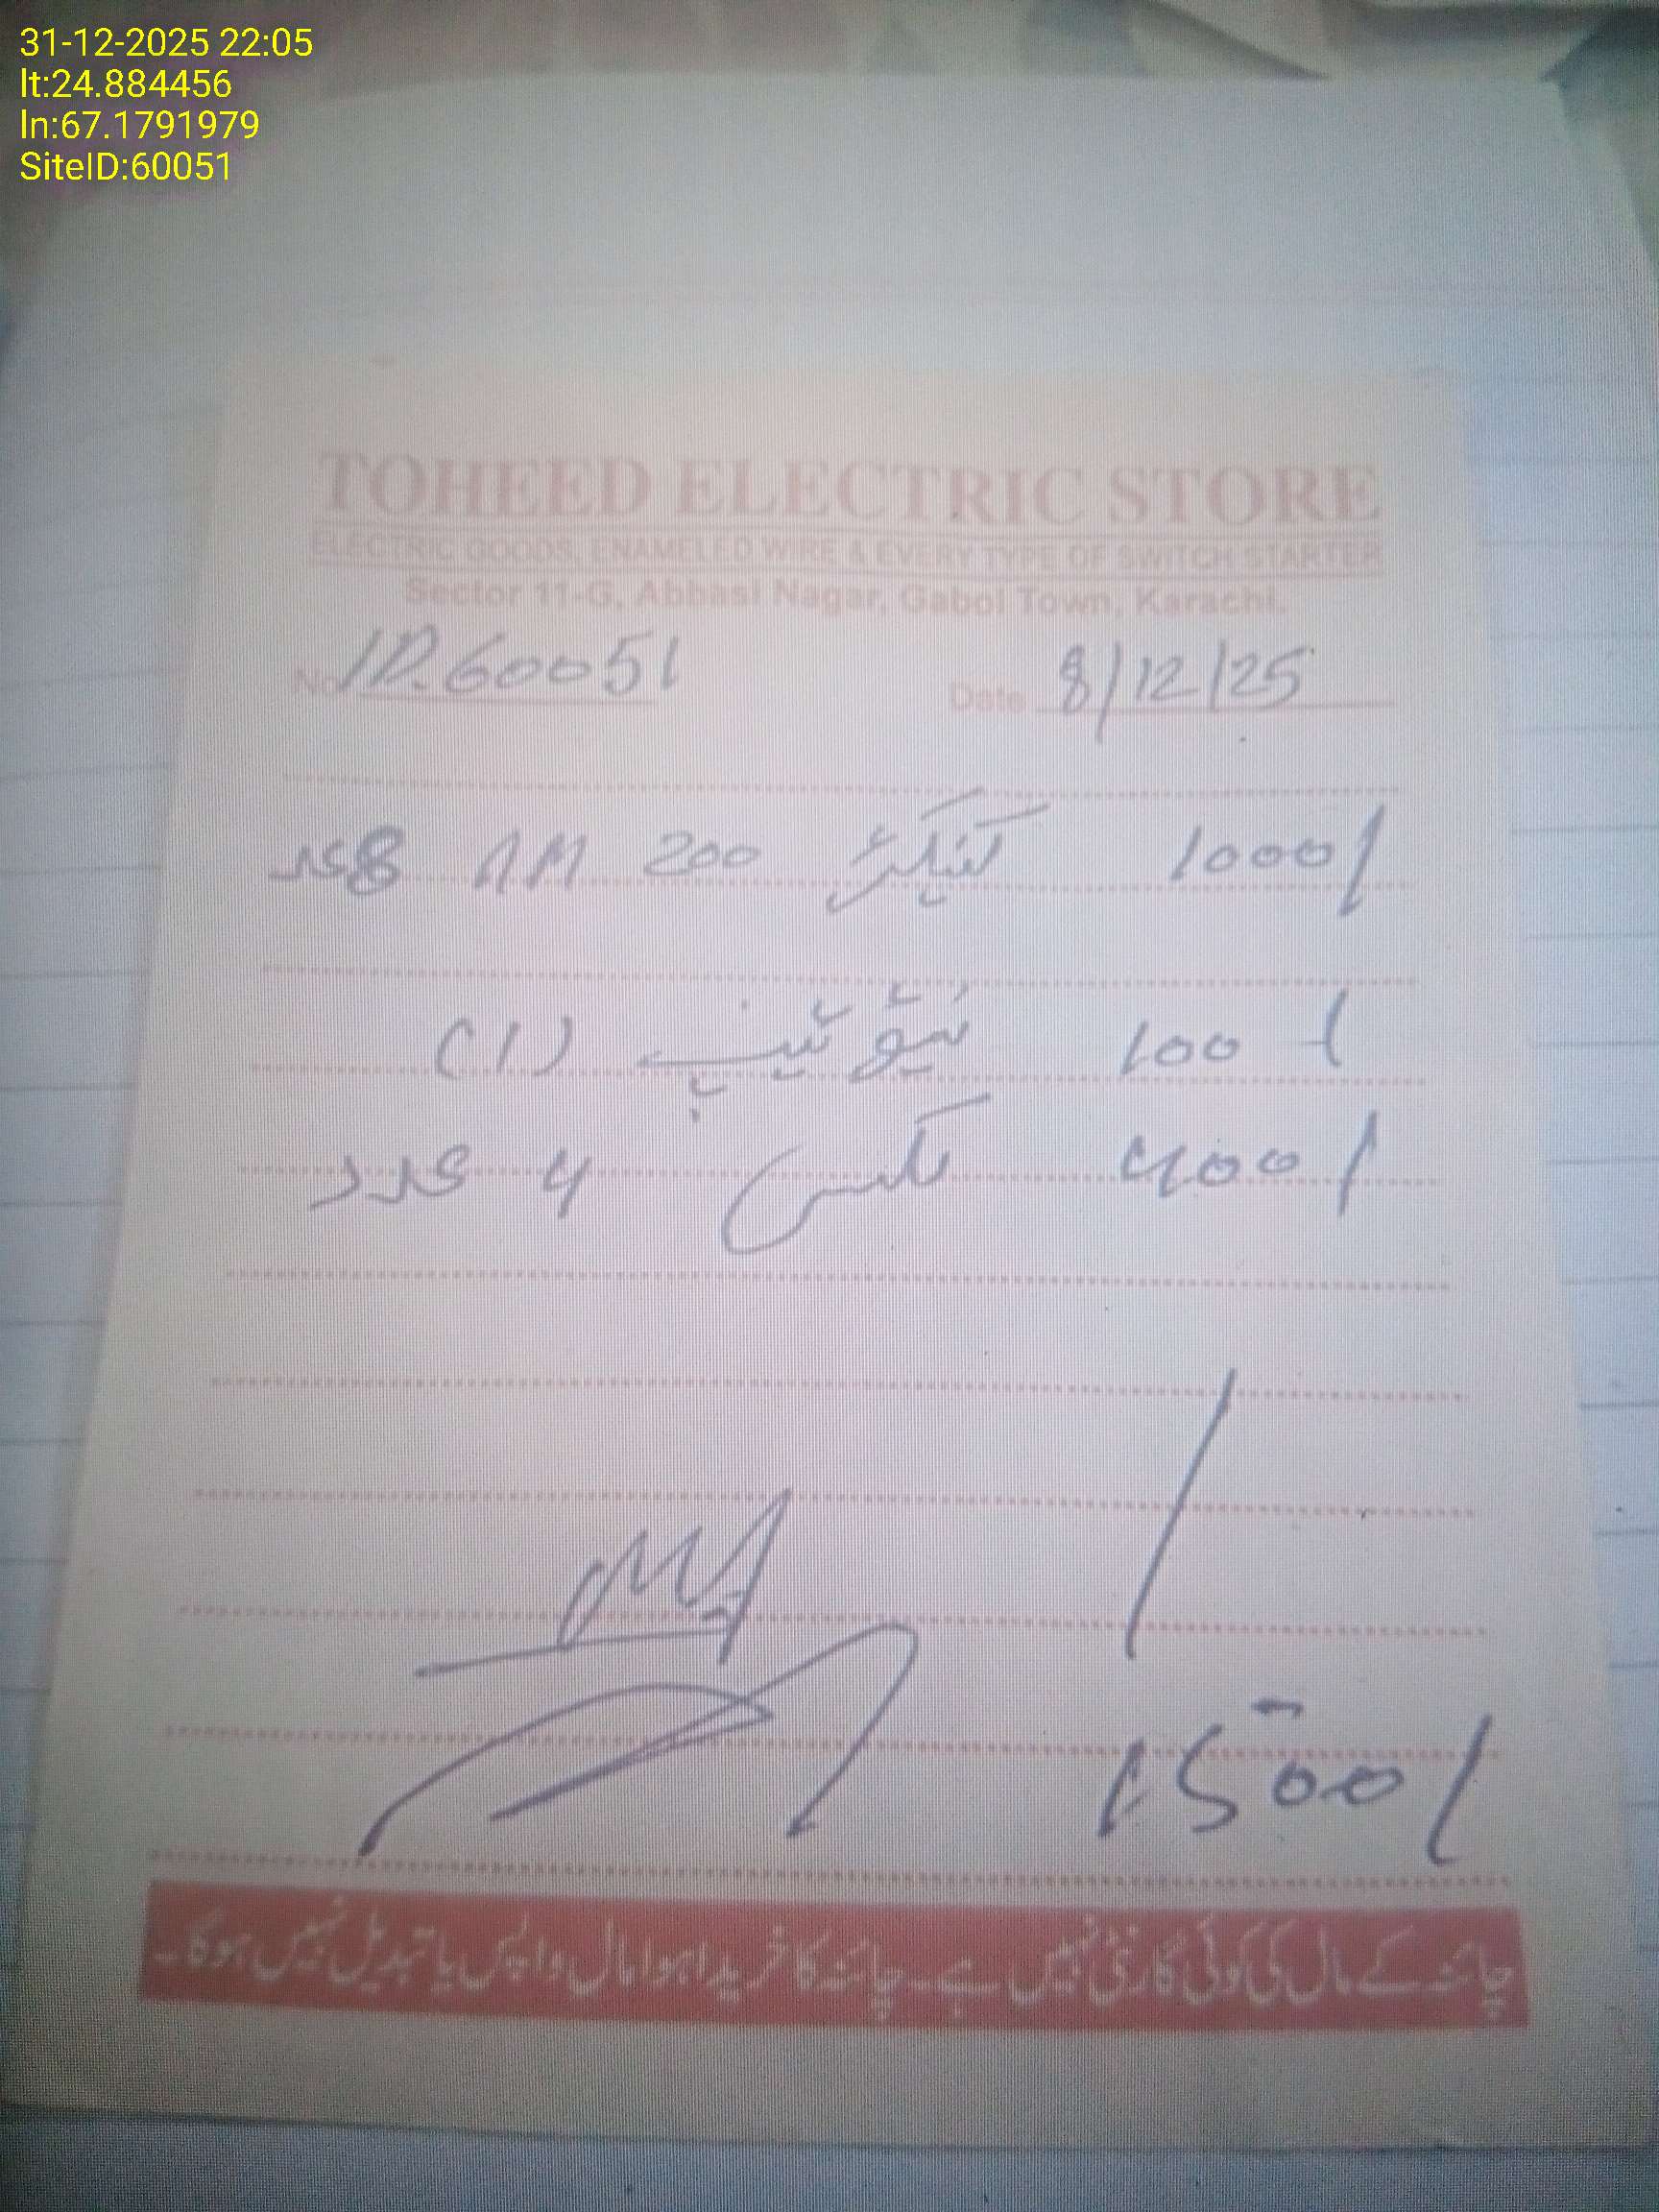 31-12-2025 22:05
lt:24.884456
ln:67.1791979
SiteID:60051
TOHEED ELECTRIC STORE
ELECTRIC GOODS, ENAMELED WIRE & EVERY TYPE OF SWITCH STARTER
Sector 11-G, Abbasi Nagar, Gabol Town, Karachi.
No ID.60051 Date 8/12/25
1000/ 200 AM 8 عدد
100 / ٹیپ (1)
400 / 4 عدد
1500/
چائنہ کے مال کی کوئی گارنٹی نہیں ہے۔ چائنہ کا خریدا ہوا مال واپس یا تبدیل نہیں ہوگا۔